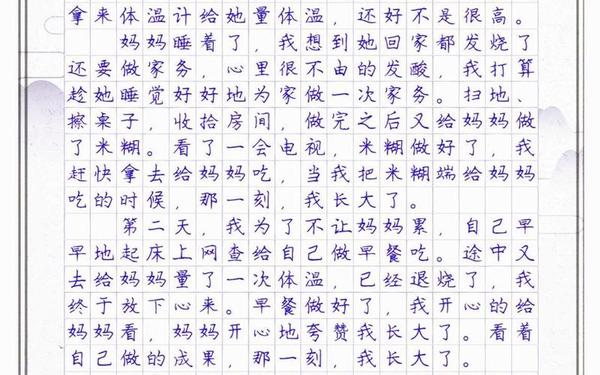 拿来体温计给她量体温，还好不是很高。
妈妈睡着了，我想到她回家都发烧了
还要做家务，心里很不由的发酸，我打算
趁她睡觉好好地为家做一次家务。扫地、
擦桌子，收拾房间，做完之后又给妈妈做
了米糊。看了一会电视，米糊做好了，我
赶快拿去给妈妈吃，当我把米糊端给妈妈
吃的时候，那一刻，我长大了。
第二天，我为了不让妈妈累，自己早
早地起床上网查给自己做早餐吃。途中又
去给妈妈量了一次体温，已经退烧了，我
终于放下心来。早餐做好了，我开心的给
妈妈看，妈妈开心地夸赞我长大了。看着
自己做的成果，那一刻，我长大了。